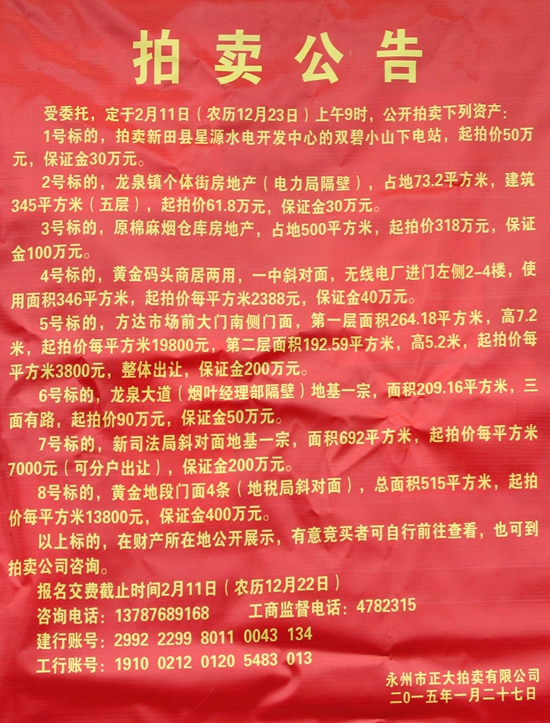 拍卖公告
受委托，定于2月11日（农历12月23日）上午9时，公开拍卖下列资产：
1号标的，拍卖新田县星源水电开发中心的双碧小山下电站，起拍价50万
元，保证金30万元。
2号标的，龙泉镇个体街房地产（电力局隔壁），占地73.2平方米，建筑
345平方米（五层），起拍价61.8万元，保证金30万元。
3号标的，原棉麻烟仓库房地产，占地500平方米，起拍价318万元，保证
金100万元。
4号标的，黄金码头商居两用，一中斜对面，无线电厂进门左侧2-4楼，使
用面积346平方米，起拍价每平方米2388元，保证金40万元。
5号标的，方达市场前大门南侧门面，第一层面积264.18平方米，高7.2
米，起拍价每平方米19800元，第二层面积192.59平方米，高5.2米，起拍价每
平方米3800元，整体出让，保证金200万元。
6号标的，龙泉大道（烟叶经理部隔壁）地基一宗，面积209.16平方米，三
面有路，起拍价90万元，保证金50万元。
7号标的，新司法局斜对面地基一宗，面积692平方米，起拍价每平方米
7000元（可分户出让），保证金200万元。
8号标的，黄金地段门面4条（地税局斜对面），总面积515平方米，起拍
价每平方米13800元，保证金400万元。
以上标的，在财产所在地公开展示，有意竞买者可自行前往查看，也可到
拍卖公司咨询。
报名交费截止时间2月11日（农历12月22日）
咨询电话：13787689168 工商监督电话：4782315
建行账号：2992 2299 8011 0043 134
工行账号：1910 0212 0120 5483 013
永州市正大拍卖有限公司
二〇一五年一月二十七日